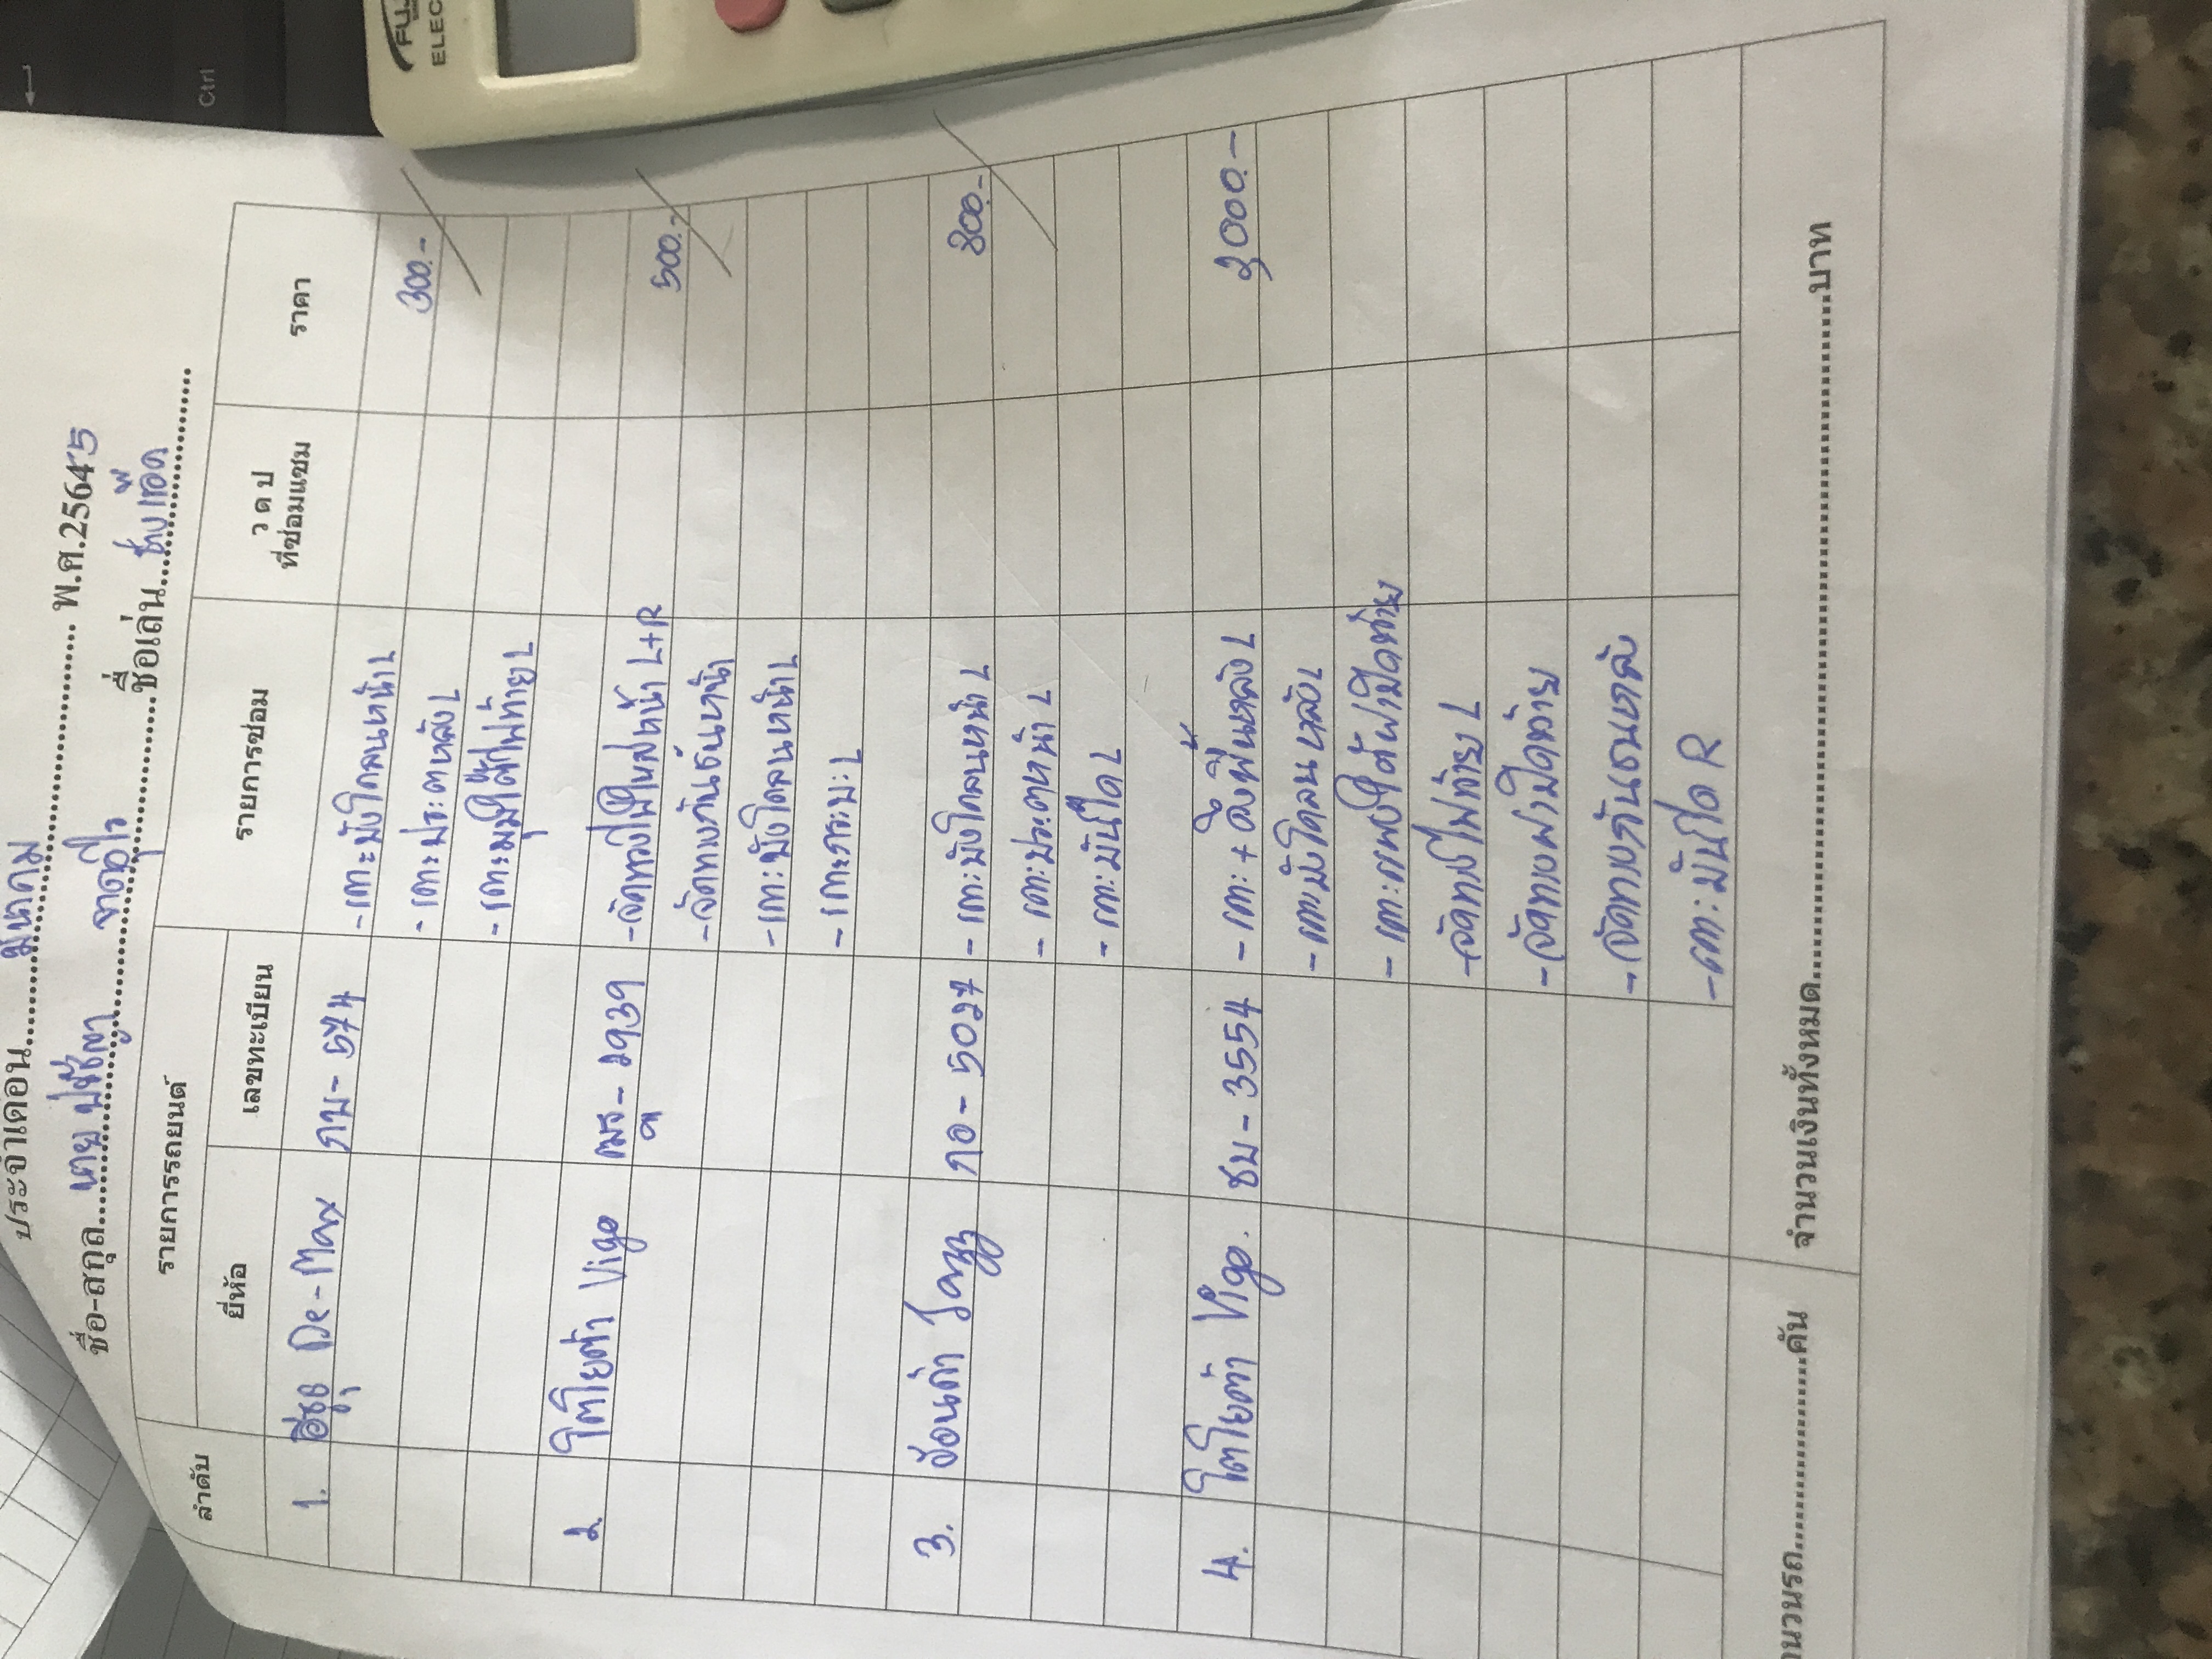 FUJ
ELEC
Ctrl
ประจำเดือน มีนาคม พ.ศ.25645
ชื่อ-สกุล นาย ปรัชญา ชื่อเล่น ช่างเชือด พี่
ลำดับ รายการรถยนต์ รายการซ่อม ว ด ป ที่ซ่อมแซม ราคา
ยี่ห้อ เลขทะเบียน
1. อีซูซุ De-Max กบ-574 -เคาะบังโคลนหน้า L
-เคาะประตูหลัง L 300.-
-เคาะมุมใต้ไฟท้าย L
2. โตโยต้า Vigo ฒร-2939 -จัดทรงไฟใหญ่หน้า L+R 500.-
-จัดทรงกันชนหน้า
-เคาะบังโคลนหน้า L
-เคาะกระบะ L
3. ฮอนด้า Jazz กอ-5027 -เคาะบังโคลนหน้า L 800.-
-เคาะประตูหน้า L
-เคาะบันได L
4. โตโยต้า Vigo. ชบ-3554 -เคาะ+ดึงพื้นหลัง L 2000.-
-เคาะบังโคลนหลัง L
-เคาะแผงใต้ฝาปิดท้าย
-จัดทรงไฟท้าย L
-จัดทรงฝาปิดท้าย
-จัดทรงกันชนหลัง
-เคาะบันได R
จำนวนรถ คัน จำนวนเงินทั้งหมด บาท